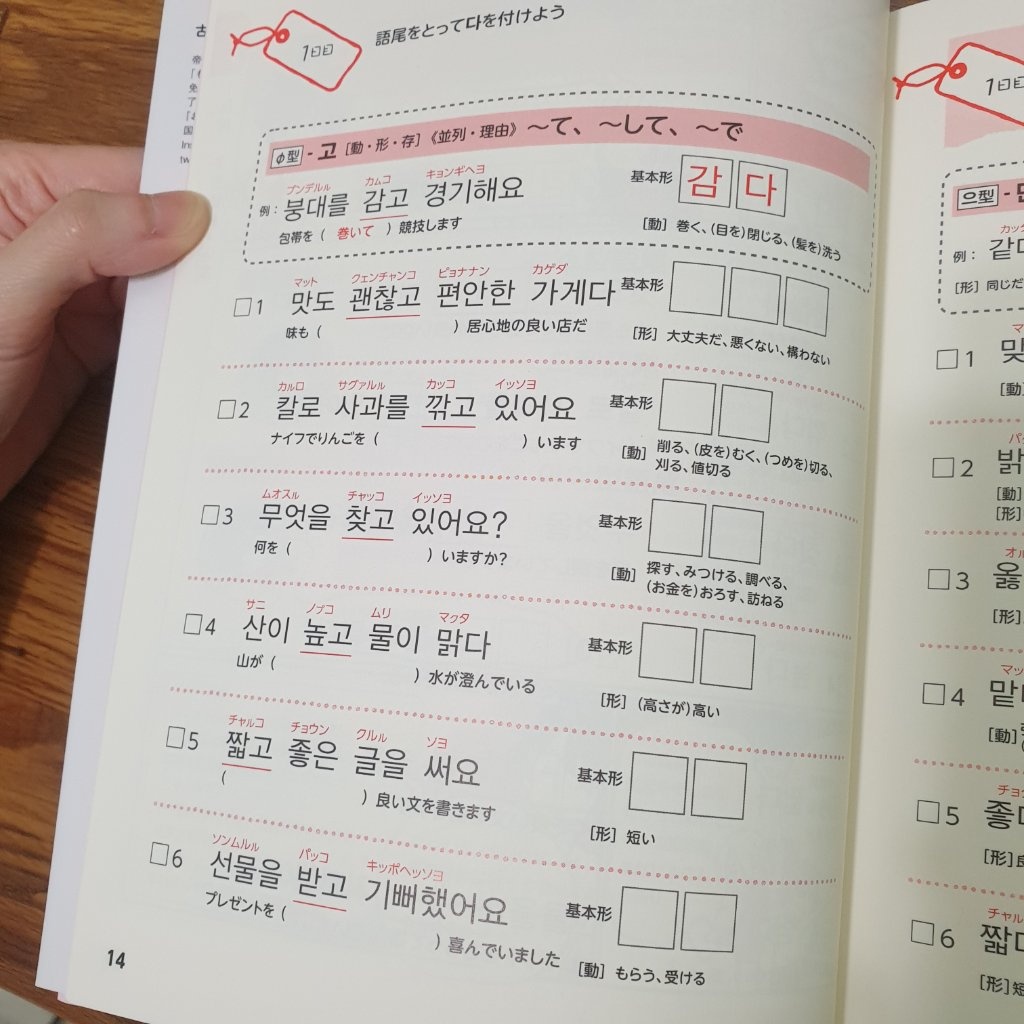 1日目
語尾をとって다を付けよう
φ型 - 고 [動・形・存]《並列・理由》 ～て、～して、～で
プンデルル カムコ キョンギヘヨ
例：붕대를 감고 경기해요
包帯を（ 巻いて ）競技します
基本形 감 다
[動] 巻く、(目を)閉じる、(髪を)洗う
マット クェンチャンコ ピョナナン カゲダ
□1 맛도 괜찮고 편안한 가게다
味も（ ）居心地の良い店だ
基本形
[形] 大丈夫だ、悪くない、構わない
カルロ サグァルル カッコ イッソヨ
□2 칼로 사과를 깎고 있어요
ナイフでりんごを（ ）います
基本形
[動] 削る、(皮を)むく、(つめを)切る、
刈る、値切る
ムオスル チャッコ イッソヨ
□3 무엇을 찾고 있어요?
何を（ ）いますか?
基本形
[動] 探す、みつける、調べる、
(お金を)おろす、訪ねる
サニ ノプコ ムリ マクタ
□4 산이 높고 물이 맑다
山が（ ）水が澄んでいる
基本形
[形] (高さが)高い
チャルコ チョウン クルル ソヨ
□5 짧고 좋은 글을 써요
（ ）良い文を書きます
基本形
[形] 短い
ソンムルル パッコ キッポヘッソヨ
□6 선물을 받고 기뻐했어요
プレゼントを（ ）喜んでいました
基本形
[動] もらう、受ける
14
1日目
으型
例：
[形] 同じだ
□1
[動]
□2
[動]
[形]
□3
[形]
□4
[動]
□5
[形]
□6
[形]